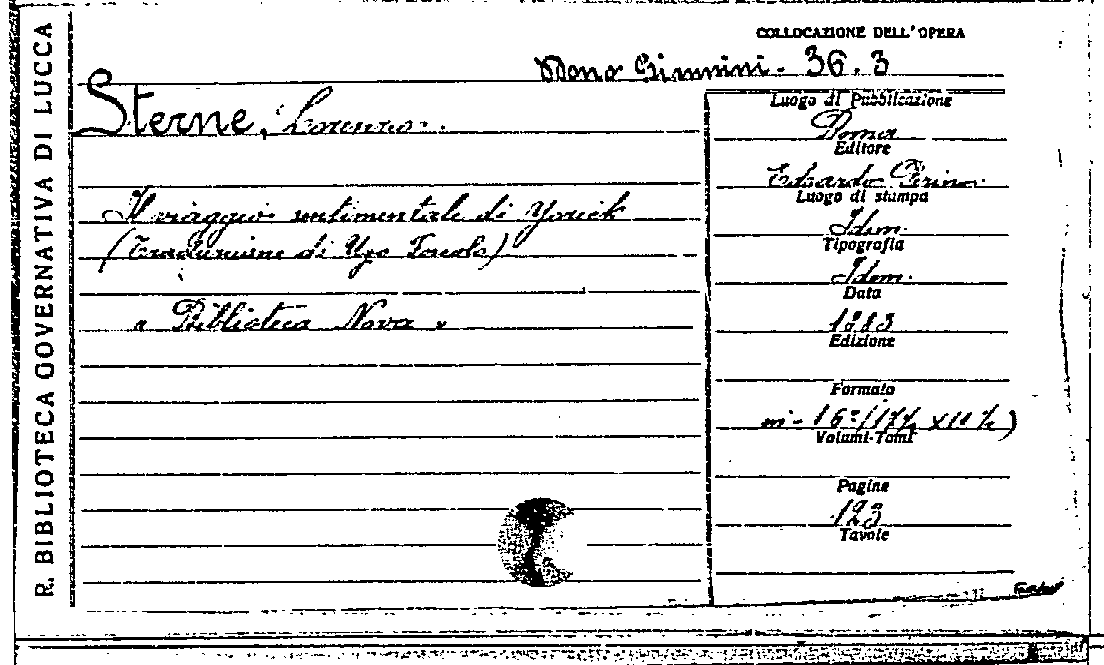 R. BIBLIOTECA GOVERNATIVA DI LUCCA
COLLOCAZIONE DELL'OPERA
Dono Giannini - 36.3
Sterne, Lorenzo.
Il viaggio sentimentale di Yorick
(Traduzione di Ugo Foscolo)
« Biblioteca Nova »
Luogo di Pubblicazione
Roma
Editore
Edoardo Perino.
Luogo di stampa
Idem.
Tipografia
Idem.
Data
1883
Edizione
Formato
in-16º (17½ x 11½)
Volumi-Tomi
Pagine
123
Tavole